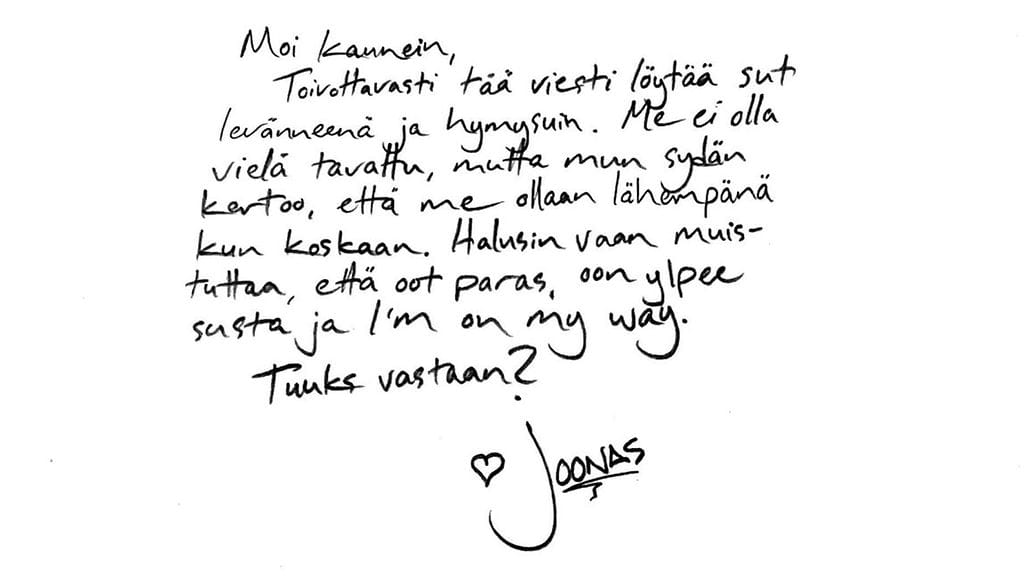 Moi kaunnein,
Toivottavasti tää viesti löytää sut
levänneenä ja hymysuin. Me ei olla
vielä tavattu, mutta mun sydän
kertoo, että me ollaan lähempänä
kun koskaan. Halusin vaan muis-
tuttaa, että oot paras, oon ylpee
susta ja I'm on my way.
Tuuks vastaan?
♡ JOONAS